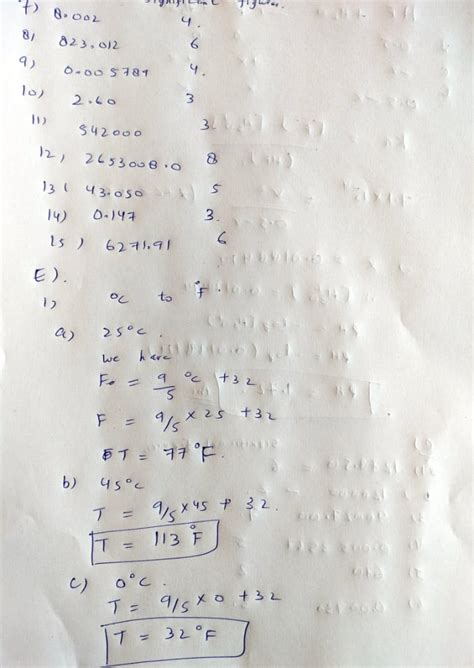 significant figures.
7) 8.002 4.
8) 823.012 6
9) 0.005789 4.
10) 2.60 3
11) 542000 3.
12) 2653008.0 8
13( 43.050 5
14) 0.147 3.
15) 6271.91 6
E).
1) °C to °F.
a) 25°C.
We have
F = 9/5 °C +32
F = 9/5 × 25 +32
T = 77°F.
b) 45°C
T = 9/5 × 45 + 32.
T = 113°F
c) 0°C.
T = 9/5 × 0 + 32
T = 32°F